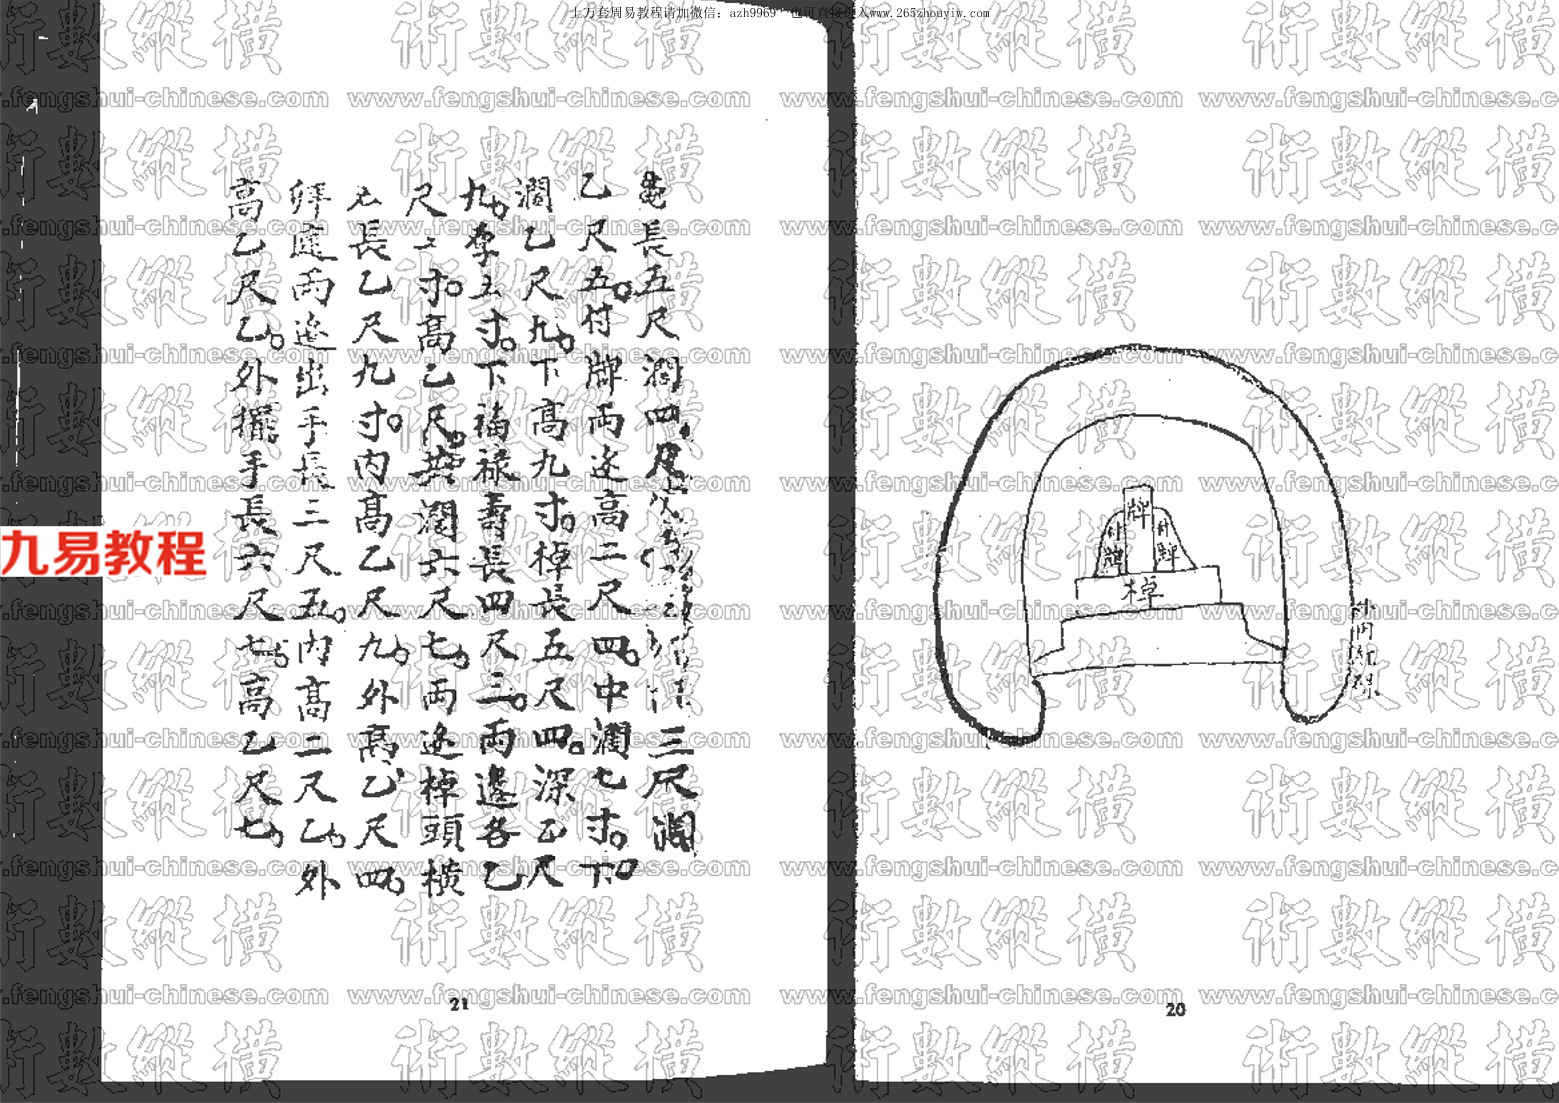 上万套周易教程请加微信：azh9969 也可直接进入www.265zhouyiw.com
術數縱橫
www.fengshui-chinese.com
九易教程
牌
附牌
附牌
棹
20
龜長五尺濶四尺
三尺濶
乙尺五。付牌兩边高二尺四。中濶七寸。下
濶乙尺九。下高九寸。棹長五尺四。深乙尺
九。李五寸。下福祿壽長四尺三。兩邊各乙
尺二寸。高乙尺。共濶六尺七。兩边棹頭橫
長乙尺九寸。內高乙尺九。外高乙尺四。
拜庭兩边出手長三尺五。內高二尺乙。外
高乙尺乙。外擺手長六尺七。高乙尺七。
21